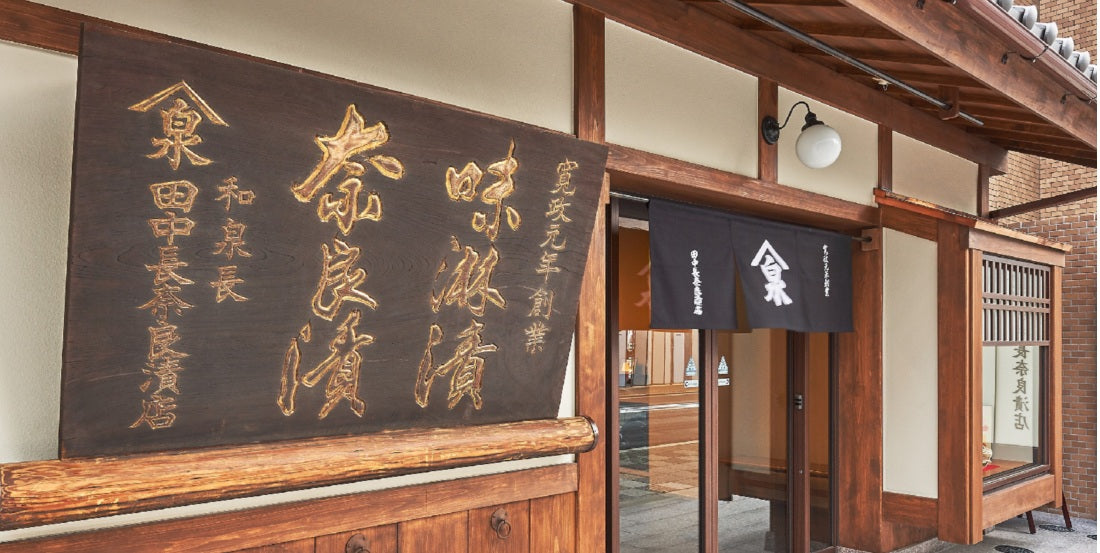 寛政元年創業
味淋漬
奈良漬
和泉長
泉
田中長奈良漬店
寛政元年創業
泉
田中長奈良漬店
長奈良漬店